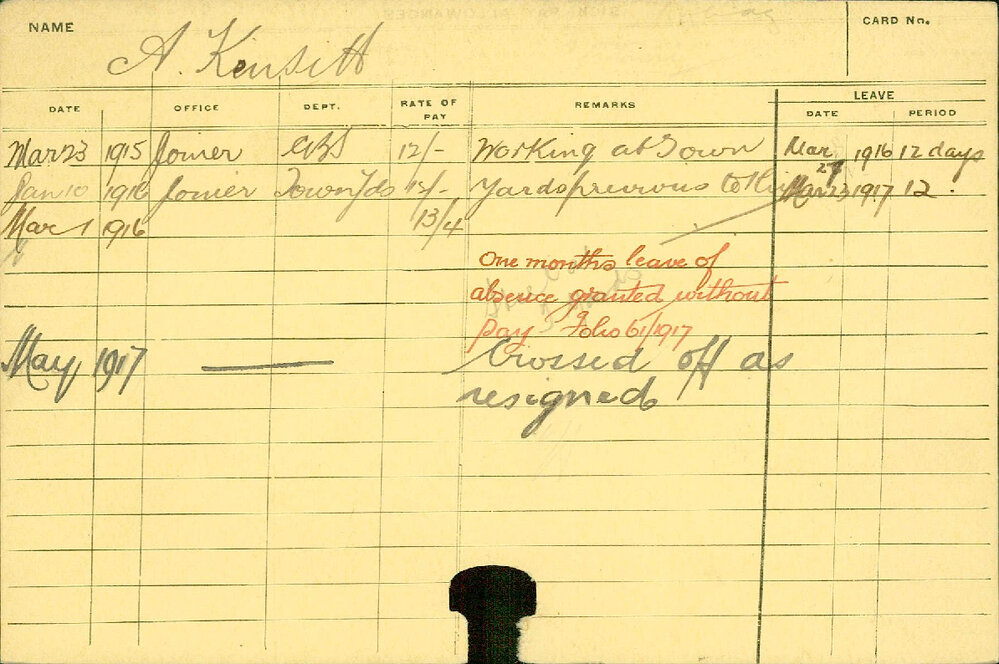 NAME A. Kensitt CARD No.
DATE OFFICE DEPT. RATE OF PAY REMARKS LEAVE
DATE PERIOD
Mar 23 1915 Joiner GBS 12/- Working at Town Mar 27 1916 12 days
Jan 10 1916 Joiner Town Yds 12/- Yards previous to this Mar 23 1917 12.
Mar 1 1916 13/4
One months leave of
absence granted without
pay Folio 61/1917
May 1917 — Crossed off as
resigned